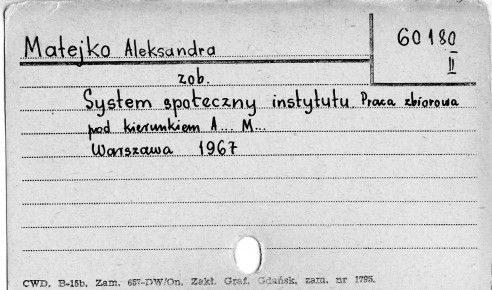 Matejko Aleksandra
60180
II
zob.
System społeczny instytutu. Praca zbiorowa
pod kierunkiem A... M...
Warszawa 1967
CWD. B-15b. Zam. 657-DW/On. Zakł. Graf. Gdańsk, zam. nr 1795.